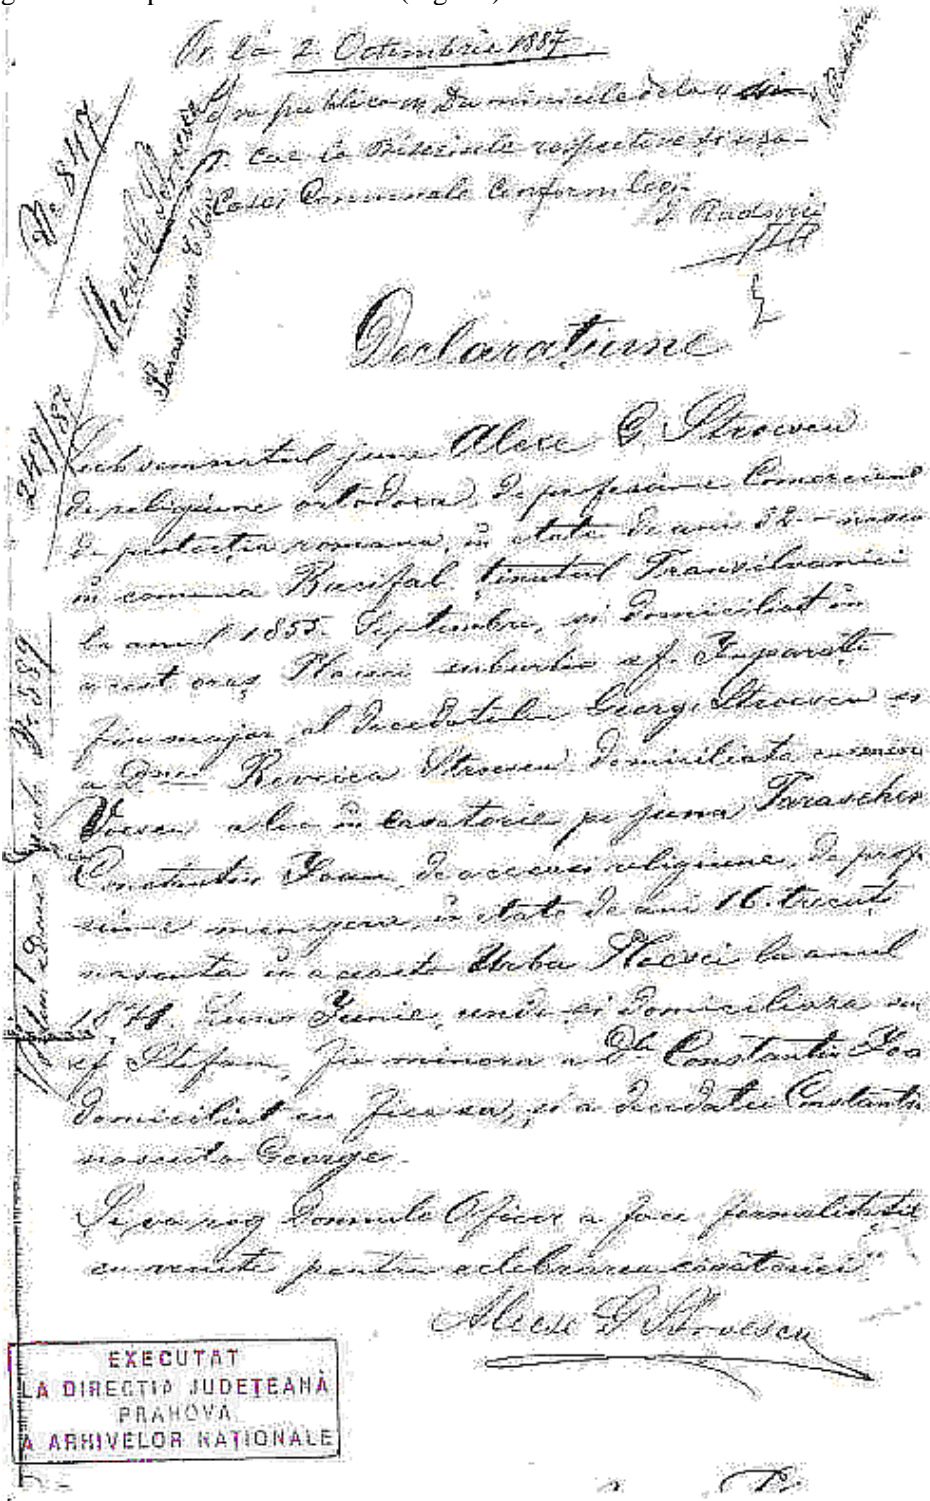 Pr. la 2 Octombrie 1887
Se va publica in Duminicile de la 4
la Bisericile respective si usa
Casei Comunale Conform legi
No 847
249/87
Declaratiune
Subsemnatul june Alexe G Stroescu
de religiune ortodoxa, de profesiune Comerciant
de protecția romana, in etate de ani 32 - nascu
in comuna tinutul Transilvaniei
la anul 1855 Septembre, si domiciliat in
acest oraș Ploesci suburbia sf. Imparați
fiu major al decedatului George Stroescu si
a Dnei Reveica Stroescu domiciliata cu
Voesce a lua in casatorie pe juna Paraschiv
Constantin Ioan, de aceeasi religiune, de profe
siune menagera, in etate de ani 16 trecuți
nascuta in aceasta Urba Ploesci la anul
1871 luna Junie, unde si domiciliaza in
sf Stefan, fiic minora a Dlui Constantin Ioa
domiciliat cu fica sa, si a decedatei Constanti
nascuta George.
Si va rog Domnule Oficer a face formalitatile
cuvenite pentru celebrarea casatoriei
Alecse G Stroescu
EXECUTAT
LA DIRECTIA JUDEȚEANĂ
PRAHOVA
A ARHIVELOR NAȚIONALE